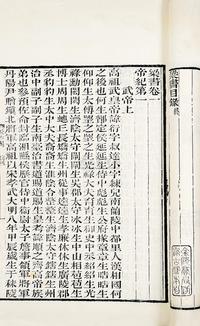 梁書目錄終
梁書卷一
帝紀第一
武帝上
高祖武皇帝諱衍字叔達小字練兒南蘭陵中都里人漢相國何
之後也何生酇定侯延延生侍中彪彪生公府掾章章生皓皓生
仰仰生太傅望之望之生光祿大夫育育生御史中丞紹紹生光
祿勳閎閎生濟陰太守闡闡生吳郡太守冰冰生中山相苞苞生
博士周周生蛇丘長矯矯生州從事逵逵生孝廉休休生廣陵郡
丞豹豹生太中大夫裔裔生淮陰令整整生濟陰太守鎋鎋生州
治中副子副子生南臺治書道賜道賜生皇考諱順之齊高帝族
弟也參預佐命封臨湘縣侯歷官侍中衛尉太子詹事領軍將軍
丹陽尹贈鎮北將軍高祖以宋孝武大明八年甲辰歲生于秣陵